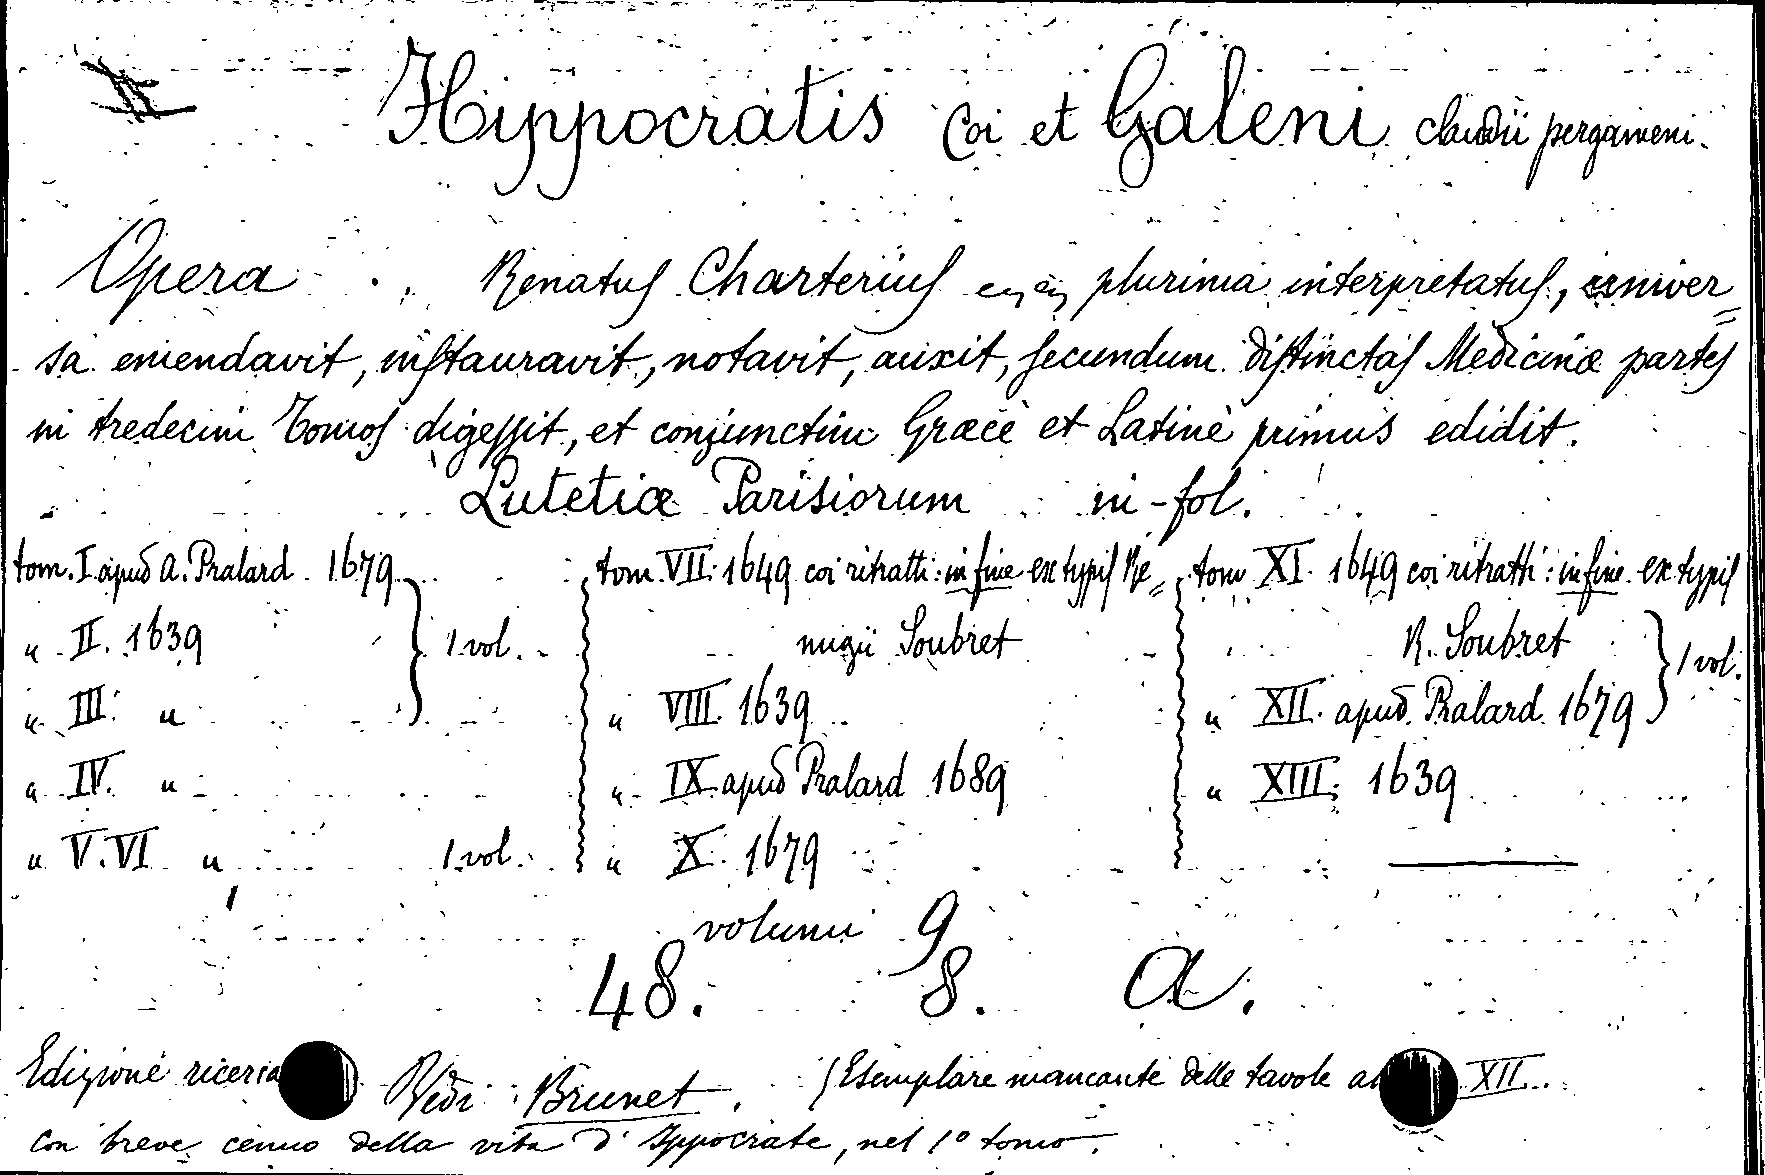 Hippocratis Coi et Galeni Claudii pergameni.
Opera . . Renatus Charterius plurima interpretatus, univer=
sa emendavit, instauravit, notavit, auxit, secundum distinctas Medicinæ partes
in tredecim Tomos digessit, et conjunctim Græcè et Latinè primus edidit.
Lutetiæ Parisiorum in-fol.
tom. I apud A. Pralard 1679
" II. 1639 1 vol.
" III. "
" IV. "
" V. VI " 1 vol.
tom. VII. 1649 coi ritratti: in fine ex typis Re=
migii Soubret
" VIII. 1639
" IX apud Pralard 1689
" X. 1679
tom XI. 1649 coi ritratti: in fine ex typis
R. Soubret 1 vol.
" XII. apud Pralard 1679
" XIII. 1639
volumi 9
48. 8. A.
Edizione Vedi Brunet. (Esemplare mancante delle tavole XII.
con breve cenno della vita d'Ippocrate, nel 1º tomo.